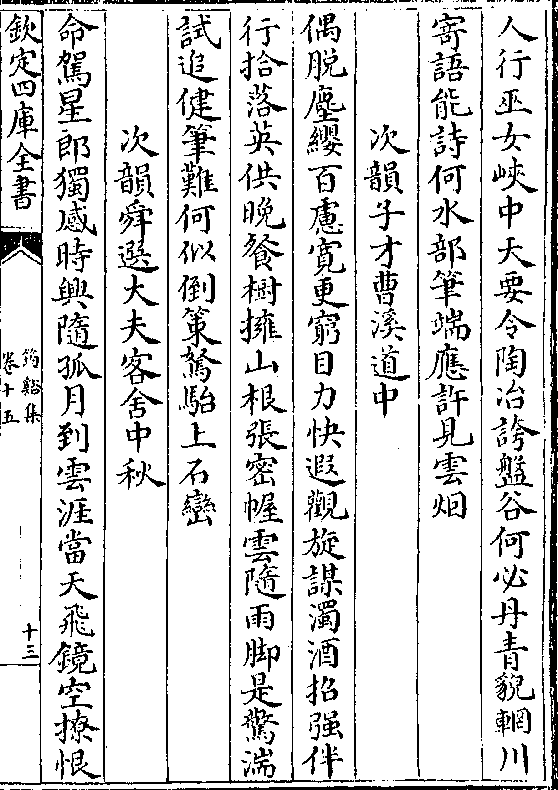 人行巫女峽中天要令陶冶誇盤谷何必丹青貌輞川
寄語能詩何水部筆端應許見雲烟
次韻子才曹溪道中
偶脱塵纓百慮寛更窮目力快遐觀旋謀濁酒招强伴
行拾落英供晚餐樹擁山根張密幄雲隨雨脚是驚湍
試追健筆難何似倒策駑駘上石巒
次韻舜選大夫客舍中秋
命駕星郎獨感時興隨孤月到雲涯當天飛鏡空撩恨
欽定四庫全書
筠谿集
卷十五
十三